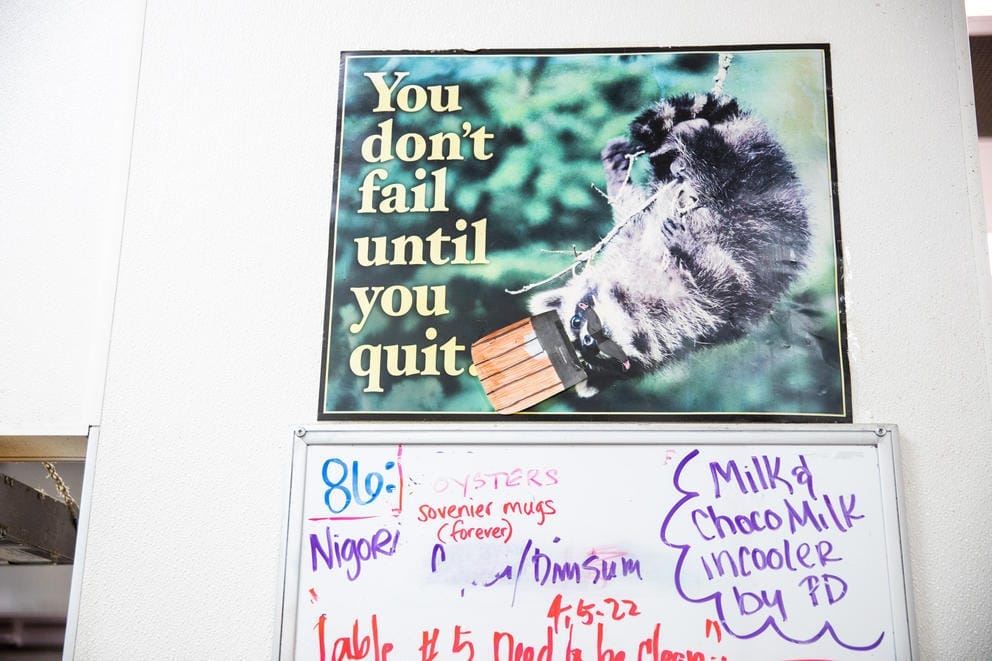 You
don't
fail
until
you
quit.
86:
OYSTERS
sovenier mugs
(forever)
Nigori
/Dimsum
Milk &
Choco Milk
in cooler
by PD
4.5-22
"Table #5 need to be clean"